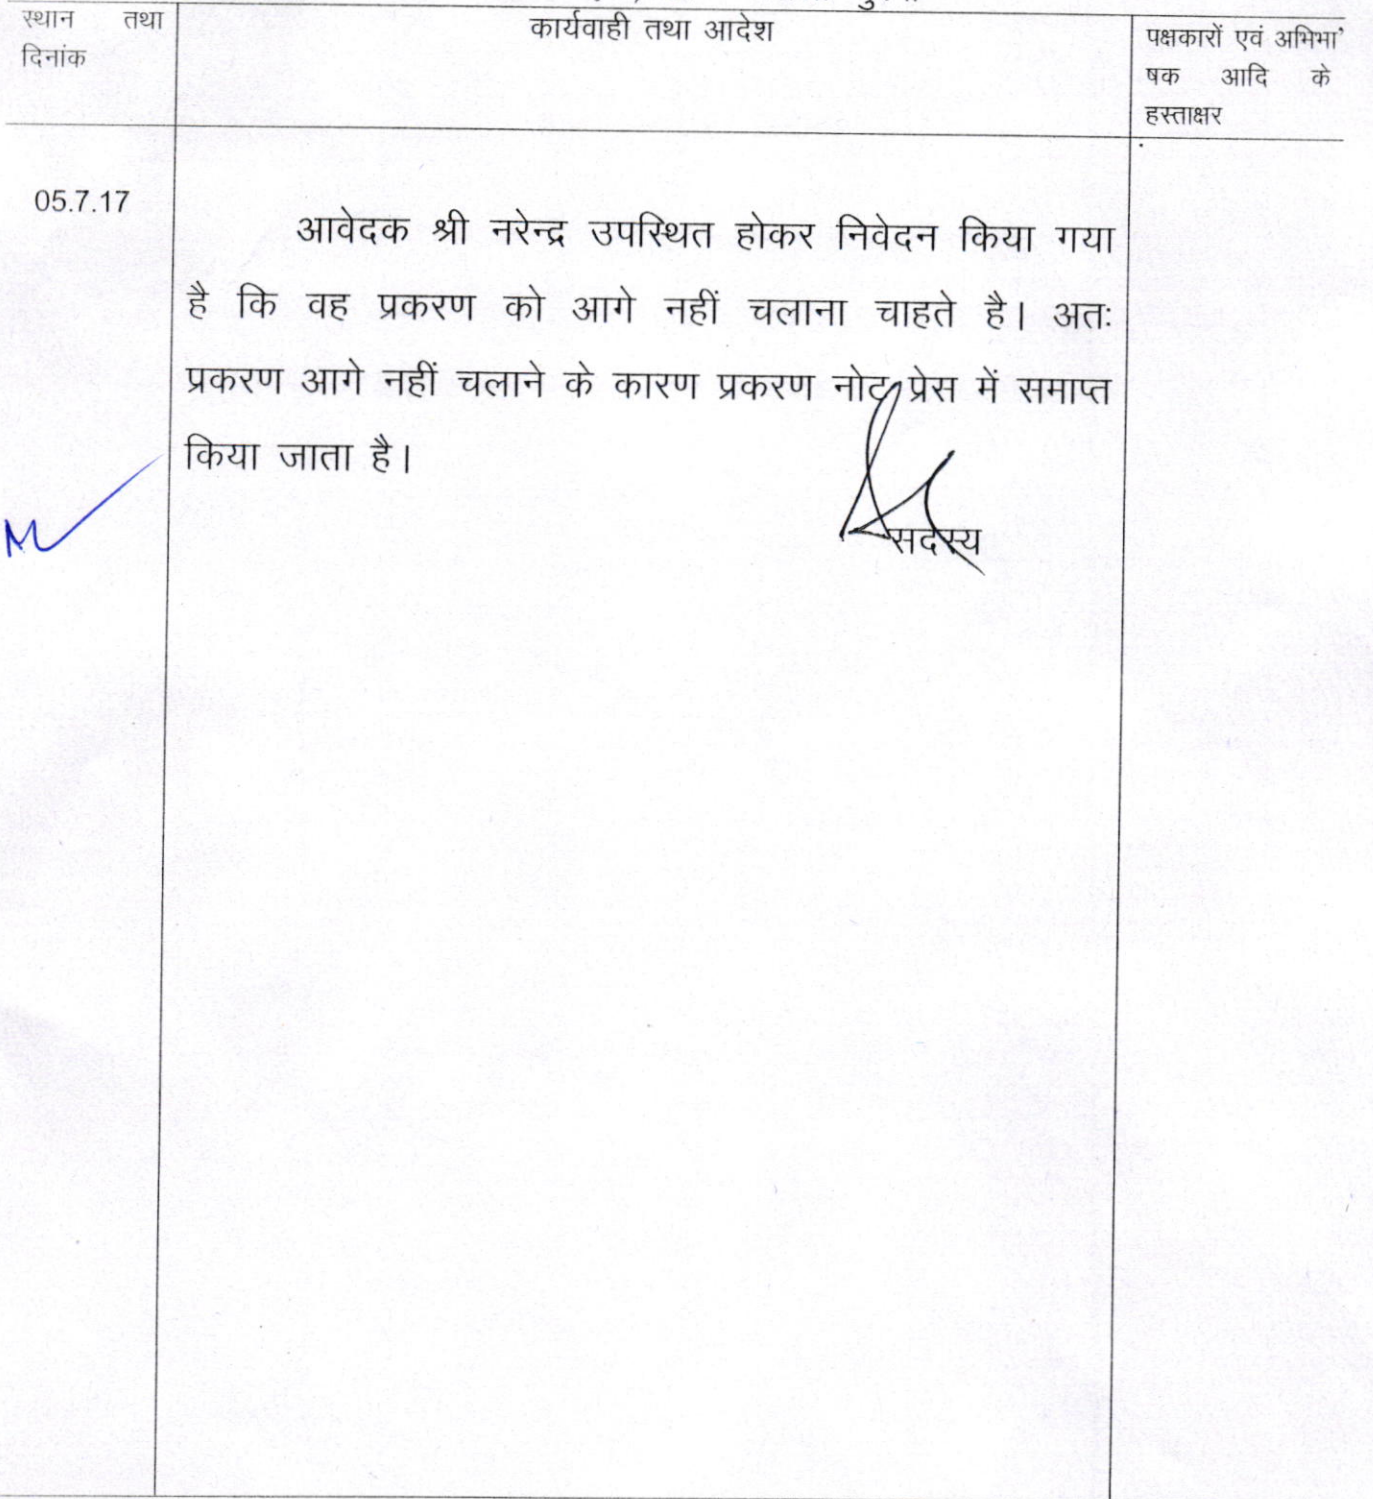 स्थान तथा
दिनांक
कार्यवाही तथा आदेश
पक्षकारों एवं अभिभा'
षक आदि के
हस्ताक्षर
05.7.17
आवेदक श्री नरेन्द्र उपस्थित होकर निवेदन किया गया
है कि वह प्रकरण को आगे नहीं चलाना चाहते है। अतः
प्रकरण आगे नहीं चलाने के कारण प्रकरण नोट प्रेस में समाप्त
किया जाता है।
सदस्य